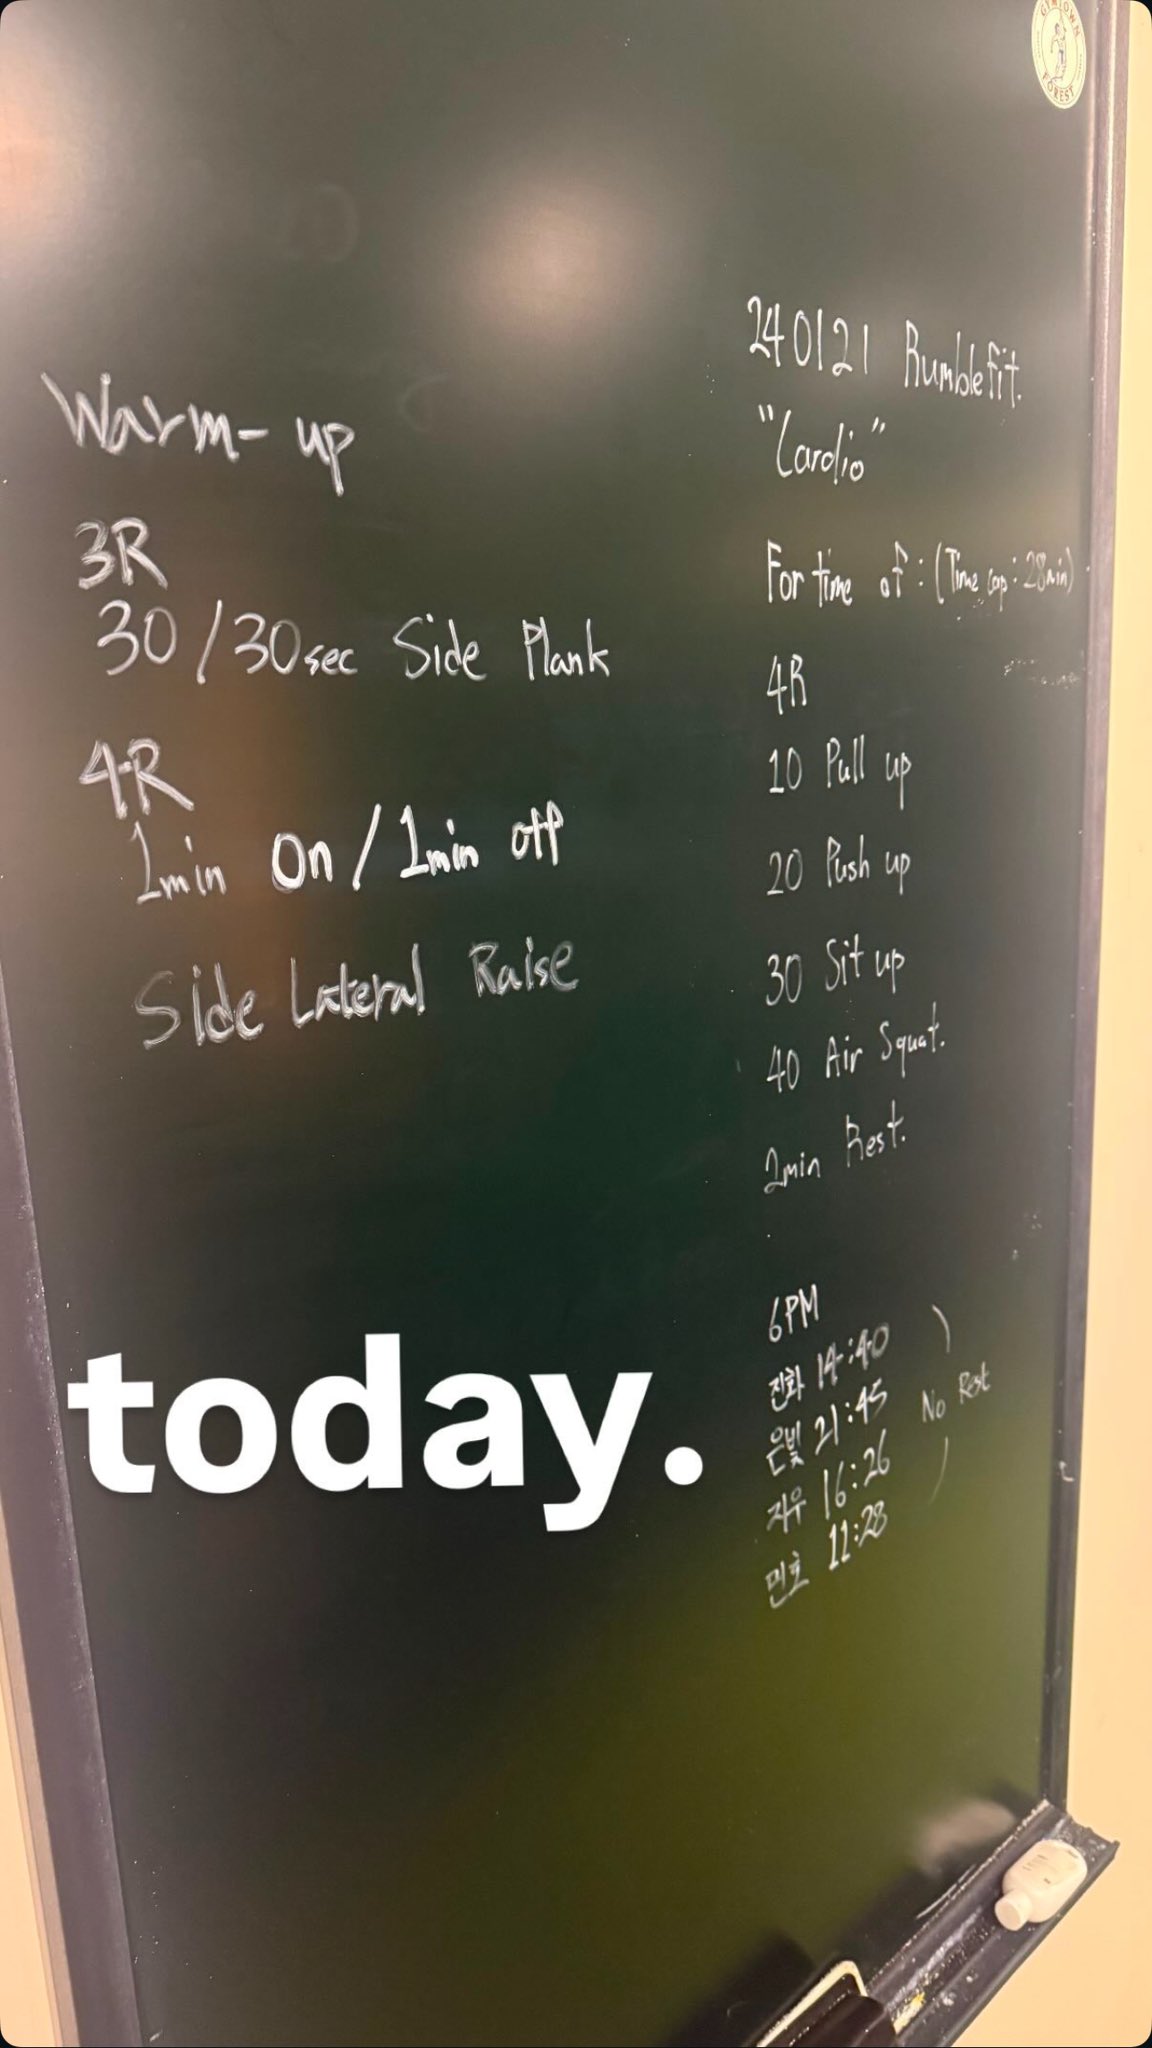 GYMTOWN
FOREST
Warm-up
3R
30/30sec Side Plank
4R
1min On/1min off
Side Lateral Raise
240121 Rumblefit.
"Cardio"
For time of : (Time cap : 28min)
4R
10 Pull up
20 Push up
30 Sit up
40 Air Squat.
2min Rest.
6PM
진화 14:40
은빛 21:45
지우 16:26
민호 11:28
) No Rest )
today.